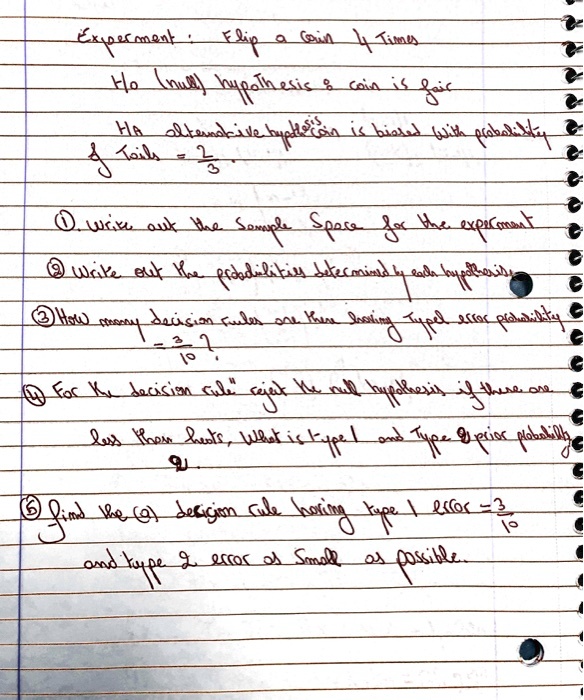 Experment : Flip a Coin 4 Times
Ho (null) hypothesis : coin is fair
HA alternative hypothesis coin is biased with probability
of Tails = 2/3.
①. Write out the Sample Space for the experment
② Write out the probabilities determined by each hypothesis.
③ How many decision rules are there having Type 1 error probability
= 3/10 ?
④ For the decision rule" reject the null hypothesis if there are
less than heats, What is type 1 and Type 2 prior probability
2.
⑤ find the (a) decision rule having type 1 error = 3/10
and type 2 error as Small as possible.